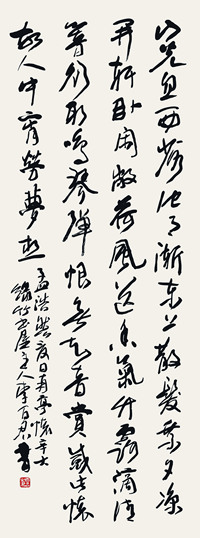 山光忽西落池月漸東上散髮乘夕涼
開軒臥閑敞荷風送香氣竹露滴清
響欲取鳴琴彈恨無知音賞感此懷
故人中宵勞夢想
孟浩然夏日南亭懷辛大
主人李百君書